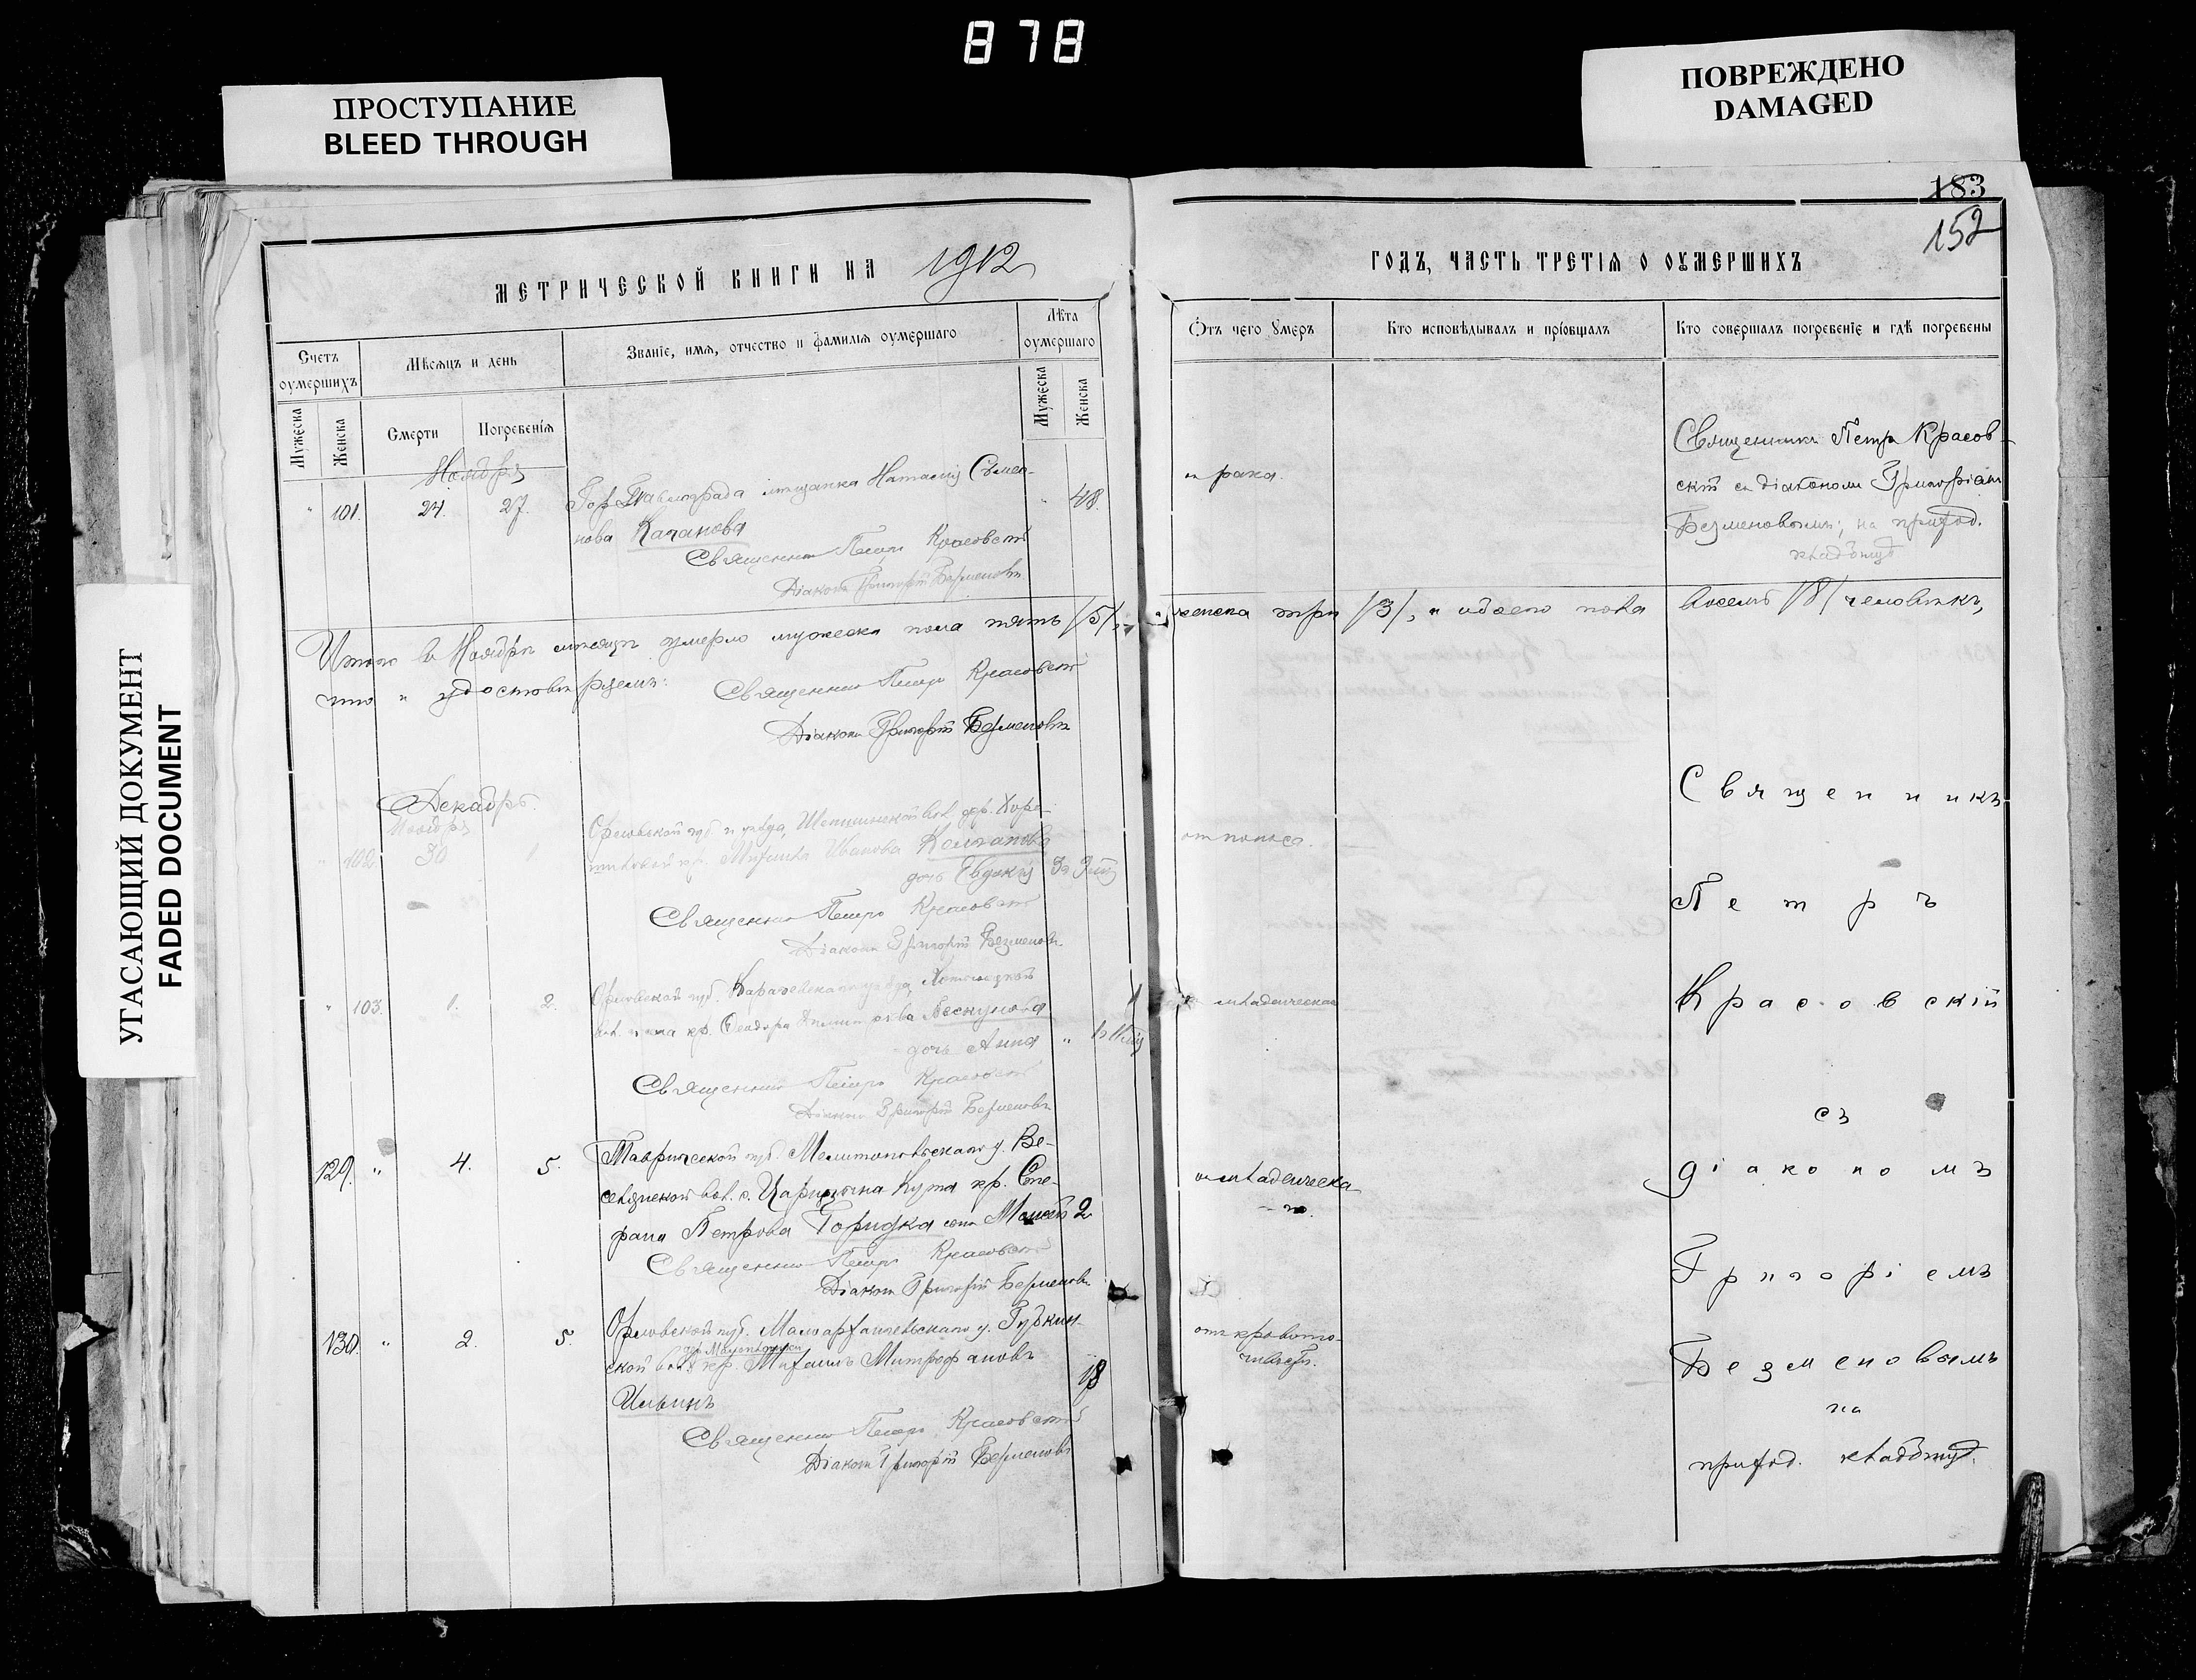 878
ПРОСТУПАНИЕ
BLEED THROUGH
ПОВРЕЖДЕНО
DAMAGED
УГАСАЮЩИЙ ДОКУМЕНТ
FADED DOCUMENT
183
152
МЕТРИЧЕСКОЙ КНИГИ НА 1912
ГОДЪ, ЧАСТЬ ТРЕТІЯ О ОУМЕРШИХЪ
Счетъ оумершихъ
Мѣсяцъ и день
Званіе, имя, отчество и фамилія оумершаго
Лѣта оумершаго
Отъ чего умеръ
Кто исповѣдывалъ и пріобщалъ
Кто совершалъ погребеніе и гдѣ погребены
Мужеска
Женска
Смерти
Погребенія
Мужеска
Женска
Ноября
" 101. 24. 27. Гор. Павлограда мѣщанка Наталія Сѵмео-
нова Качанова
" 48.
рака.
Священникъ Петръ Красовскій
Діаконъ Григорій Безменовъ
Священникъ Петръ Красов-
скій съ діакономъ Григоріемъ
Безменовымъ; на приход.
кладбищѣ
Итого въ Ноябрѣ мѣсяцѣ умерло мужеска пола пять /5/, женска три /3/, а обоего пола восемь /8/ человѣкъ,
что и удостовѣряемъ:
Священникъ Петръ Красовскій
Діаконъ Григорій Безменовъ
Декабрь.
Ноября
" 102 30 1 Орловской губ. и уѣзда,
кр. Иванова
дочь Евдокія
отъ поноса.
Священникъ Петръ Красовскій
Діаконъ Григорій Безменовъ
" 103. 1. 2. Орловской губ. Карачевскаго уѣзда,
вол. кр. Ѳеодора
дочь Анна "
младенческой
Священникъ Петръ Красовскій
Діаконъ Григорій Безменовъ
129. " 4. 5. Таврической губ. Мелитопольскаго у. Ве-
селянской вол. с. Царицына Кута кр. Сте-
фана Петрова Горидка сынъ 2
младенческа-
го.
Священникъ Петръ Красовскій
Діаконъ Григорій Безменовъ
130. " 2. 5. Орловской губ. Малоархангельскаго у. Губкин-
ской вол. кр. Михаилъ Митрофановъ
Ильинъ
18
отъ кровото-
Священникъ Петръ Красовскій
Діаконъ Григорій Безменовъ
Священникъ
Петръ
Красовскій
съ
діакономъ
Григоріемъ
Безменовымъ
на
приход. кладбищѣ.